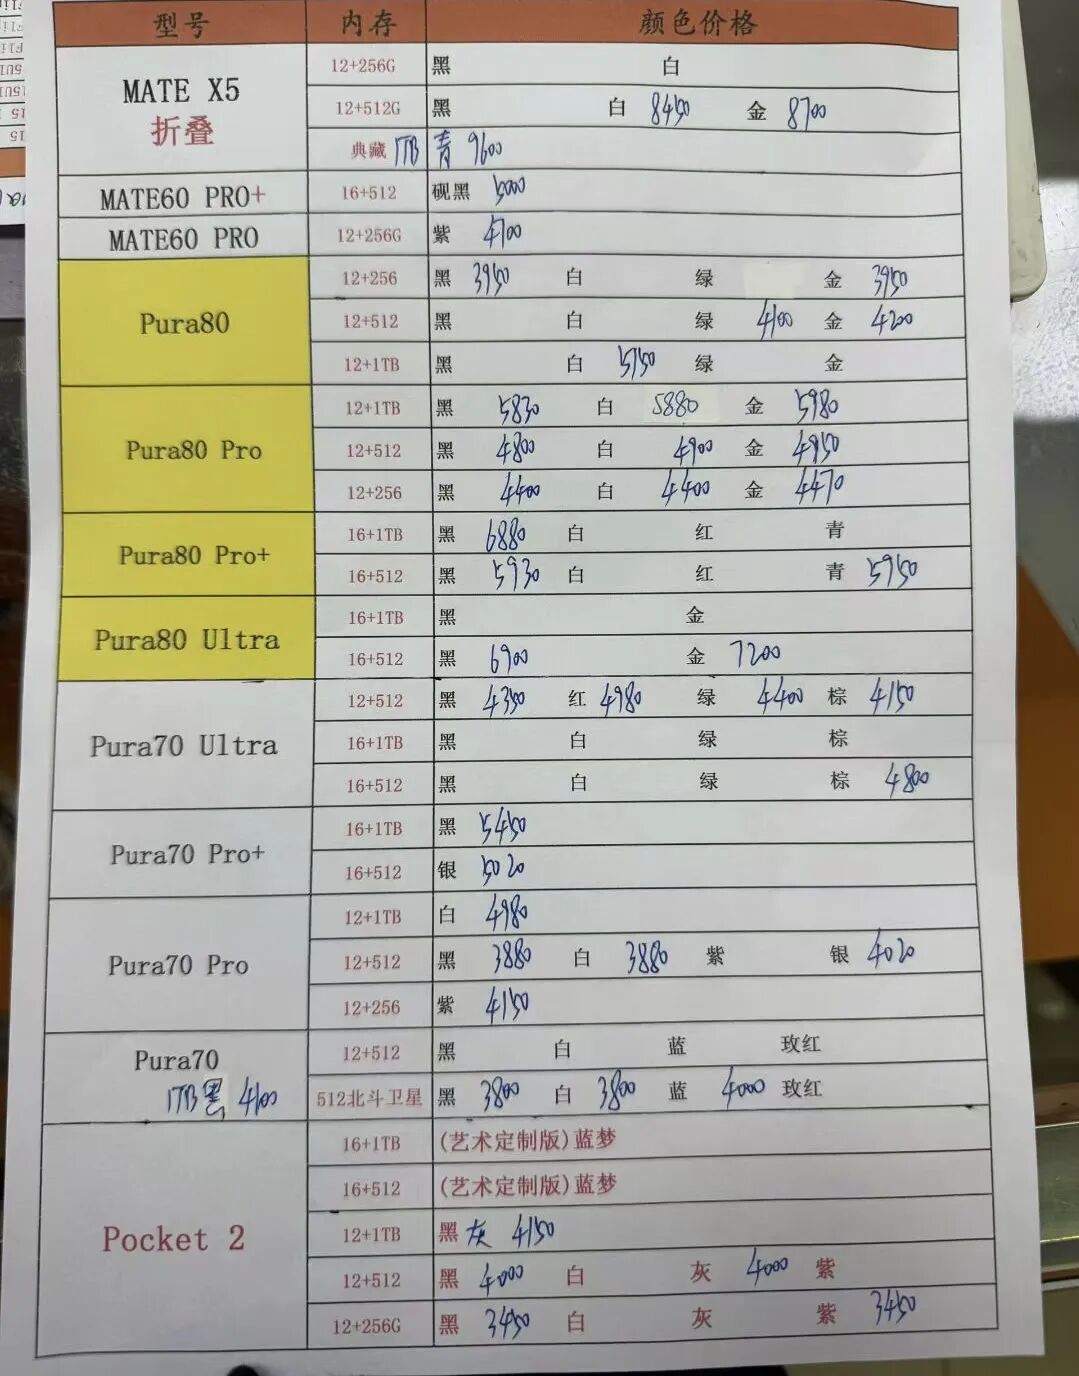 型号 内存 颜色价格
MATE X5 折叠 12+256G 黑 白
12+512G 黑 白 8450 金 8700
典藏 1TB 青 9600
MATE60 PRO+ 16+512 砚黑 5000
MATE60 PRO 12+256G 紫 4700
Pura80 12+256 黑 3950 白 绿 金 3950
12+512 黑 白 绿 4100 金 4200
12+1TB 黑 白 5150 绿 金
Pura80 Pro 12+1TB 黑 5830 白 5880 金 5980
12+512 黑 4800 白 4900 金 4950
12+256 黑 4400 白 4400 金 4470
Pura80 Pro+ 16+1TB 黑 6880 白 红 青
16+512 黑 5930 白 红 青 5950
Pura80 Ultra 16+1TB 黑 金
16+512 黑 6900 金 7200
Pura70 Ultra 12+512 黑 4350 红 4980 绿 4400 棕 4150
16+1TB 黑 白 绿 棕
16+512 黑 白 绿 棕 4800
Pura70 Pro+ 16+1TB 黑 5450
16+512 银 5020
Pura70 Pro 12+1TB 白 4980
12+512 黑 3880 白 3880 紫 银 4020
12+256 紫 4150
Pura70 12+512 黑 白 蓝 玫红
1TB黑 4100 512北斗卫星 黑 3800 白 3800 蓝 4000 玫红
Pocket 2 16+1TB (艺术定制版)蓝梦
16+512 (艺术定制版)蓝梦
12+1TB 黑 灰 4150
12+512 黑 4000 白 灰 4000 紫
12+256G 黑 3450 白 灰 紫 3450